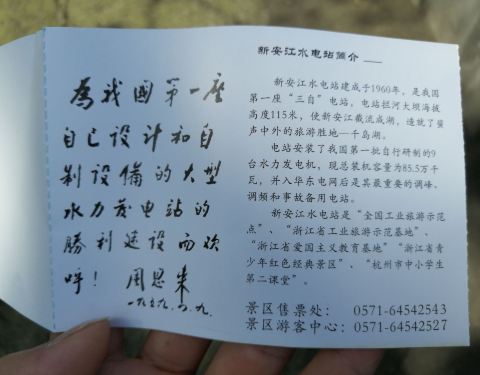 為我國第一座
自己设计和自
制设備的大型
水力发电站的
勝利建设而欢
呼！ 周恩来
一九五九.四.九.
新安江水电站简介
新安江水电站建成于1960年，是我国
第一座“三自”电站，电站拦河大坝海拔
高度115米，使新安江截流成湖，造就了蜚
声中外的旅游胜地—千岛湖。
电站安装了我国第一批自行研制的9
台水力发电机，现总装机容量为85.5万千
瓦，并入华东电网后是其最重要的调峰、
调频和事故备用电站。
新安江水电站是“全国工业旅游示范
点”、“浙江省工业旅游示范基地”、
“浙江省爱国主义教育基地”“浙江省青
少年红色经典景区”、“杭州市中小学生
第二课堂”。
景区售票处： 0571-64542543
景区游客中心：0571-64542527